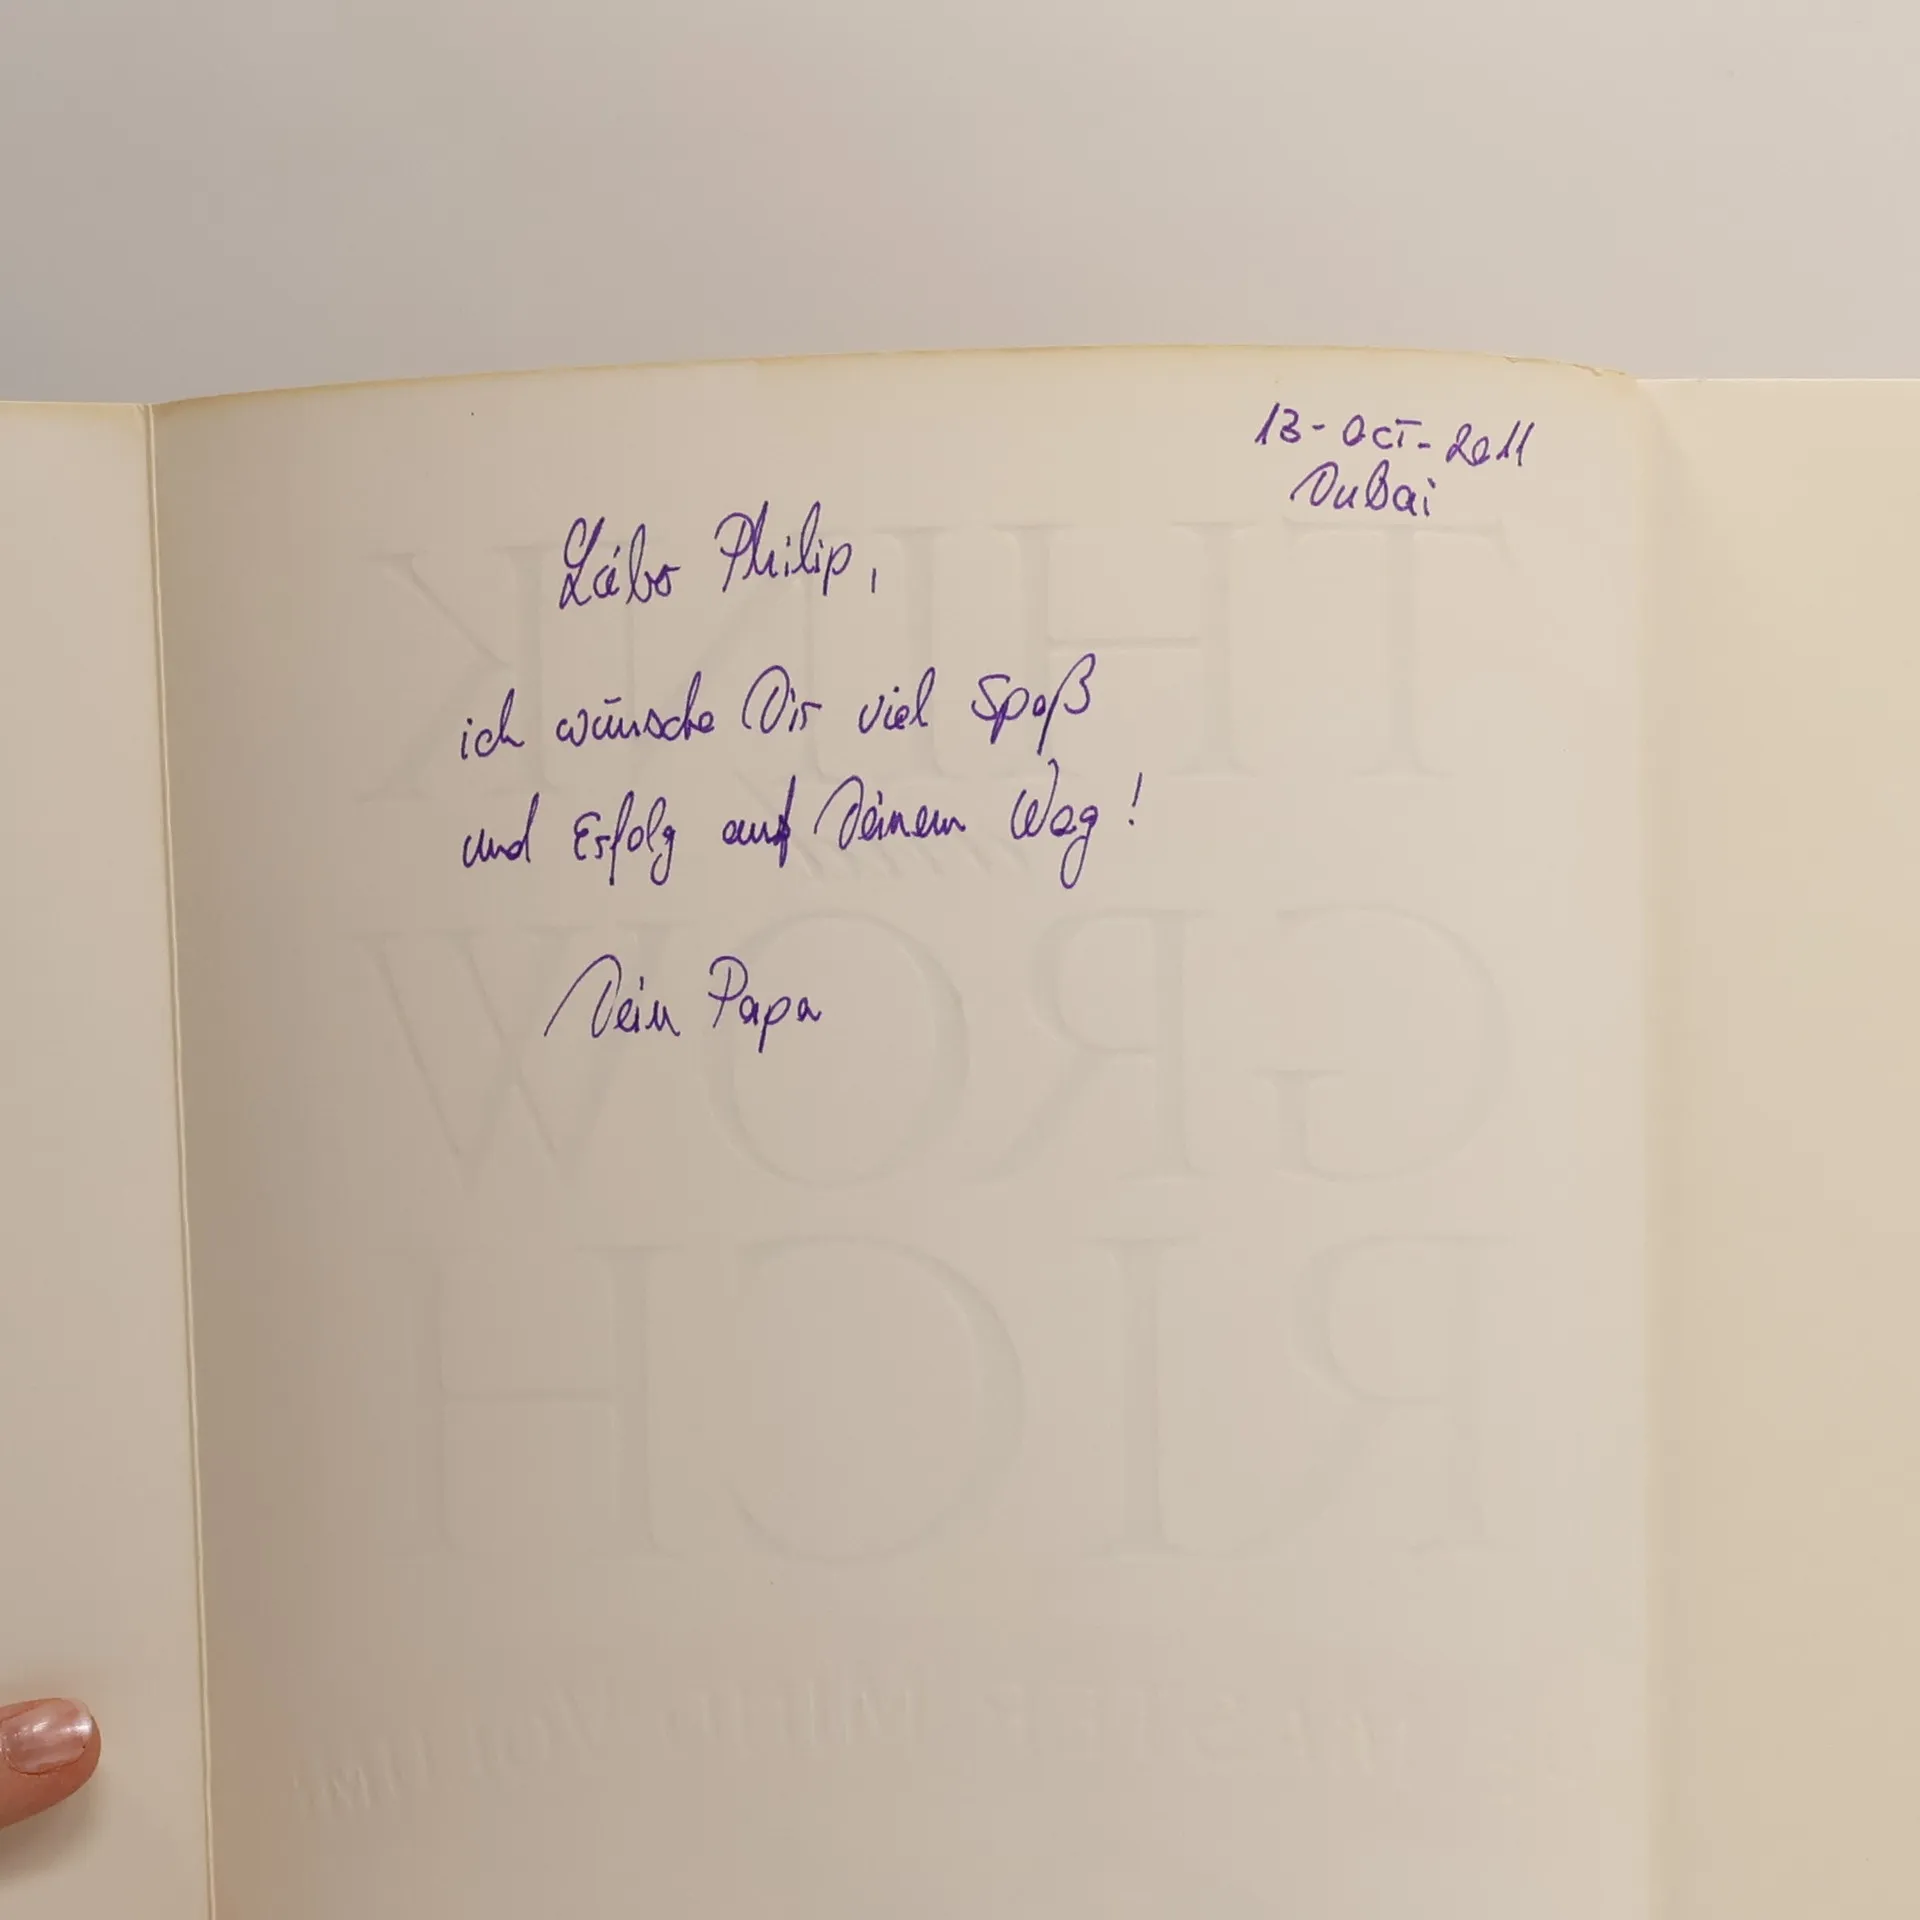 13-Oct-2011
Dubai
Lieber Philip,
ich wünsche Dir viel Spaß
und Erfolg auf Deinem Weg!
Dein Papa
THINK
GROW
RICH